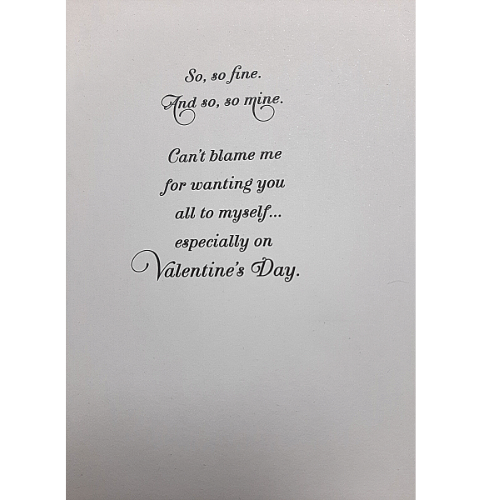 So, so fine.
And so, so mine.
Can't blame me
for wanting you
all to myself...
especially on
Valentine's Day.